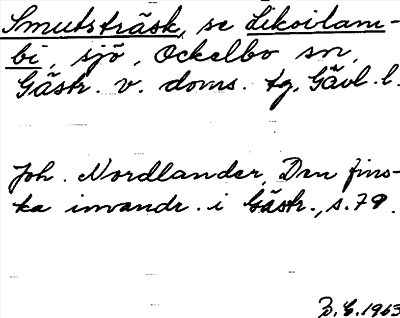 Smutsträsk, se Likoilam-
bi, sjö, Ockelbo sn,
Gästr. v. doms. tg, Gävl. l.
Joh. Nordlander, Den fins-
ka invandr. i Gästr., s. 79.
B. E. 1963